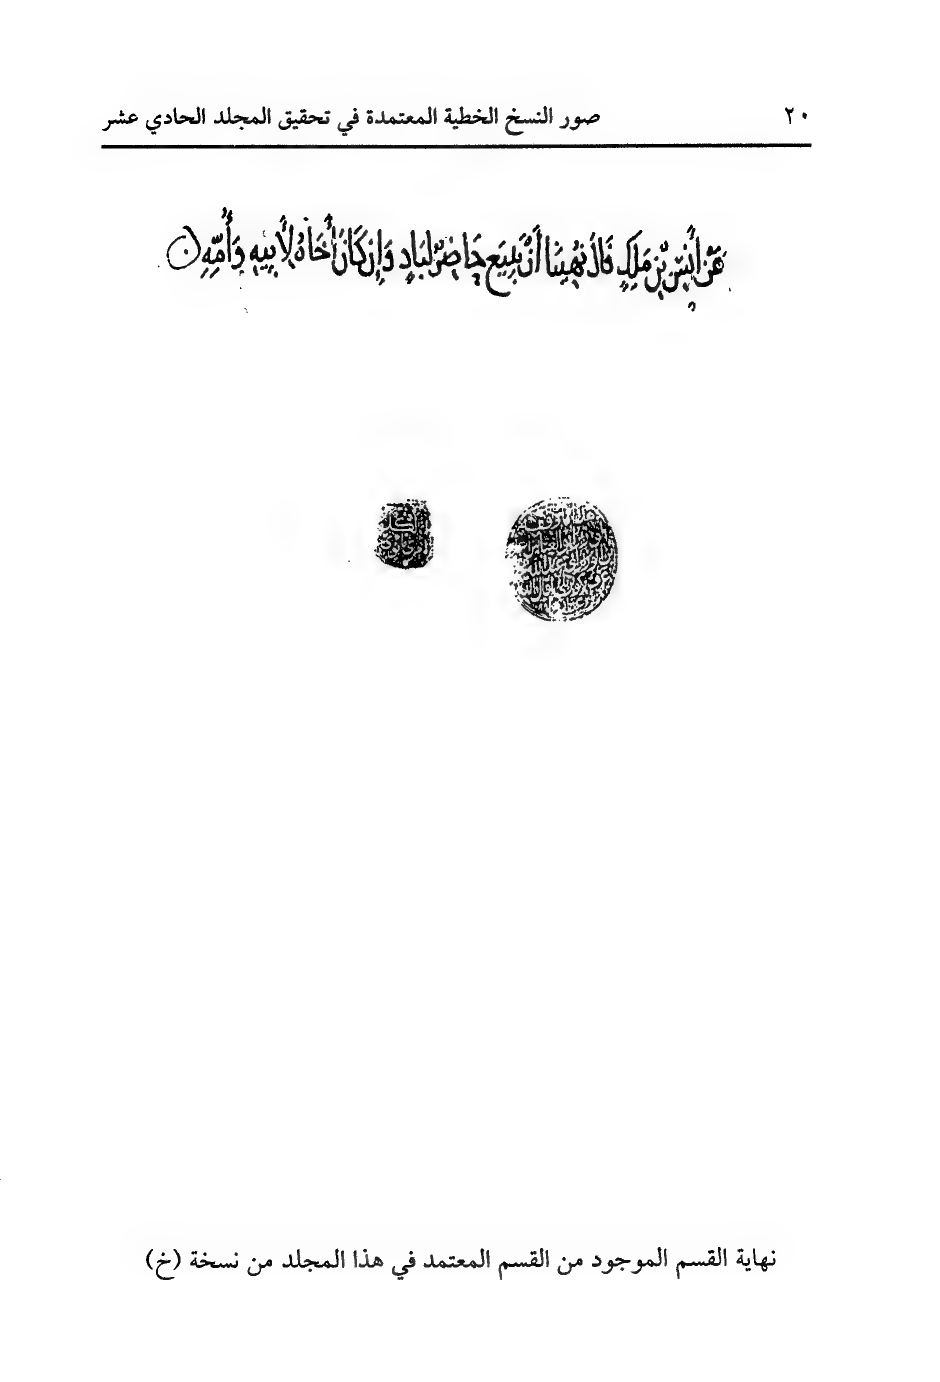 ٢٠ صور النسخ الخطية المعتمدة في تحقيق المجلد الحادي عشر
عَن أَنَسِ بْنِ مَلِكٍ قَالَ نُهِينَا أَنْ يَبِيَع حَاضِرٌ لِبَادٍ وَإِن كَانَ أَخَاهُ لأَبِيهِ وَأُمِّهِ
نهاية القسم الموجود من القسم المعتمد في هذا المجلد من نسخة (خ)